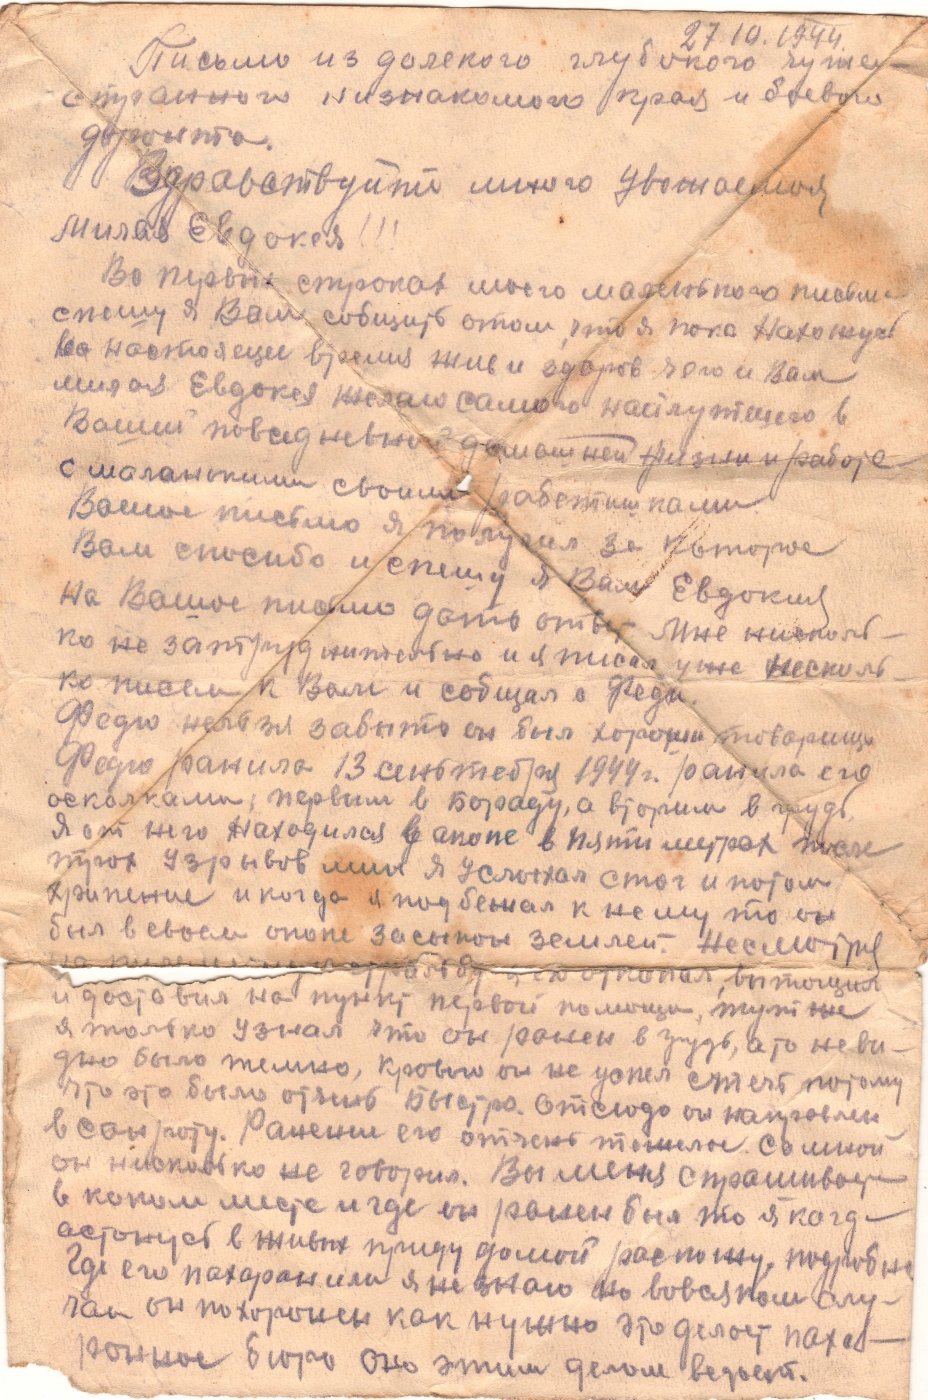 27.10.1944.
Письмо из далекого глубокого чуже-
странного низнакомого края и боевого
фронта.
Здравствуйти много уважаемая
милая Евдокея!!!
Во первых строках моего маленького письма
спешу я Вам собщить отом, что я пока нахожусь
во настоящее время жив и здоров чего и Вам
милая Евдокея желаю самого найлутшего в
Вашей повседневной домашней жизни и работе
с маланькими своими рабетишками
Вашое письмо я получил за которое
Вам спосибо и спешу я Вам Евдокия
на Вашое письмо дать ответ. Мне нисколь-
ко не затруднительно и я писал уже несколь-
ко писем к Вам и собщал о Феди.
Федю нельзя забыть он был хороший товарищ
Федю ранила 13 сентебря 1944 г. ранила его
осколками, первым в Бораду, а вторым в грудь,
я от него находился в акопе в пяти метрах после
трох узрывов мин я услыхал стог и потом
храпение и когда я подбежал к нему то он
был в своем окопе засыпон землей. Несмотря
на стрельбу я его откопал, вытощил
и доставил на пункт первой помощи, тут же
я только узнал что он ранен в грудь, а то неви-
дно было темно, кровью он не успел стечь потому
что это было отчень быстро. Отсюдо он направлен
в сан роту. Ранение его отчень тяжелое. Со мной
он нисколько не говорил. Вы меня спрашиваете
в каком месте и где он ранен был то я когда
астонусь в живых приду домой раскожу, подробно
Где его пахаранили я не знаю но вовсяком слу-
чаи он похоронен как нужно это делает паха-
ронное бюро оно этим делом ведает.